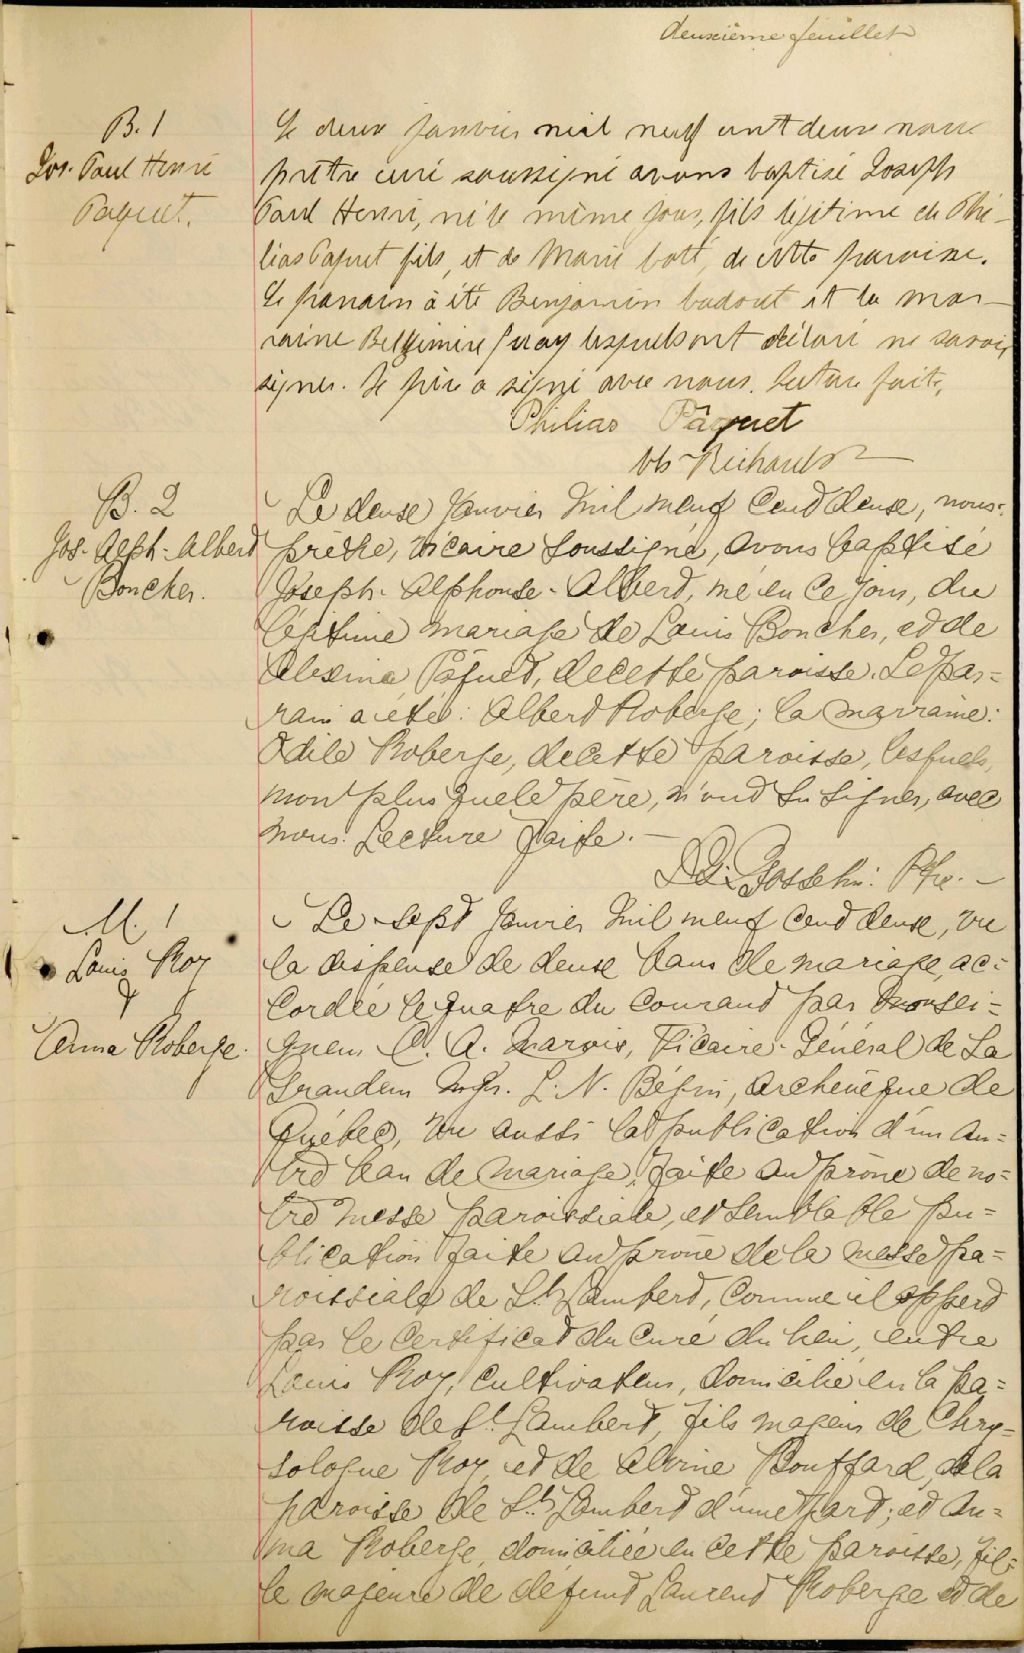 deuxième feuillet
B. 1
Jos. Paul Henri
Paquet.
Le deux janvier mil neuf cent deux nous
prêtre curé soussigné avons baptisé Joseph
Paul Henri, né le même jour, fils légitime de Phi-
lias Paquet fils, et de Marie Coté, de cette paroisse.
Le parrain a été Benjamin Cadoret et la mar-
raine Guay lesquels ont déclaré ne savoir
signer. Le père a signé avec nous. Lecture faite,
Philias Pâquet
Richard
B. 2
Jos-Alph-Albert
Boucher.
Le deuxe Janvier mil neuf cent deuxe, nous
prêtre, vicaire soussigné, avons baptisé
Joseph-Alphonse-Albert, né en ce jour, du
légitime mariage de Louis Boucher, et de
Alexina Pâquet, de cette paroisse. Le par=
rain a été: Albert Roberge; la marraine:
Odile Roberge, de cette paroisse, lesquels,
non plus que le père, n'ont su signer, avec
nous. Lecture faite.—
Gosselin: Ptre.—
M. 1
Louis Roy
&
Anna Roberge.
Le sept Janvier mil neuf cent deuxe, vu
la dispense de deuxe bans de mariage, ac=
cordée le quatre du courant par Monsei=
gneur C. A. Marois, Vicaire-Général de Sa
Grandeur Mgr. L. N. Bégin, archevêque de
Québec, vu aussi la publication d'un au=
tre ban de mariage, faite au prône de no=
tre messe paroissiale, et semblable pu=
blication faite au prône de la messe pa=
roissiale de St. Lambert, comme il appert
par le certificat du curé du lieu, entre
Louis Roy, cultivateur, domicilié en la pa=
roisse de St. Lambert, fils majeur de Chry=
sologue Roy, et de Alvine Bouffard, de la
paroisse de St. Lambert d'une part; et An=
na Roberge, domiciliée en cette paroisse, fil=
le majeure de défunt Laurent Roberge et de